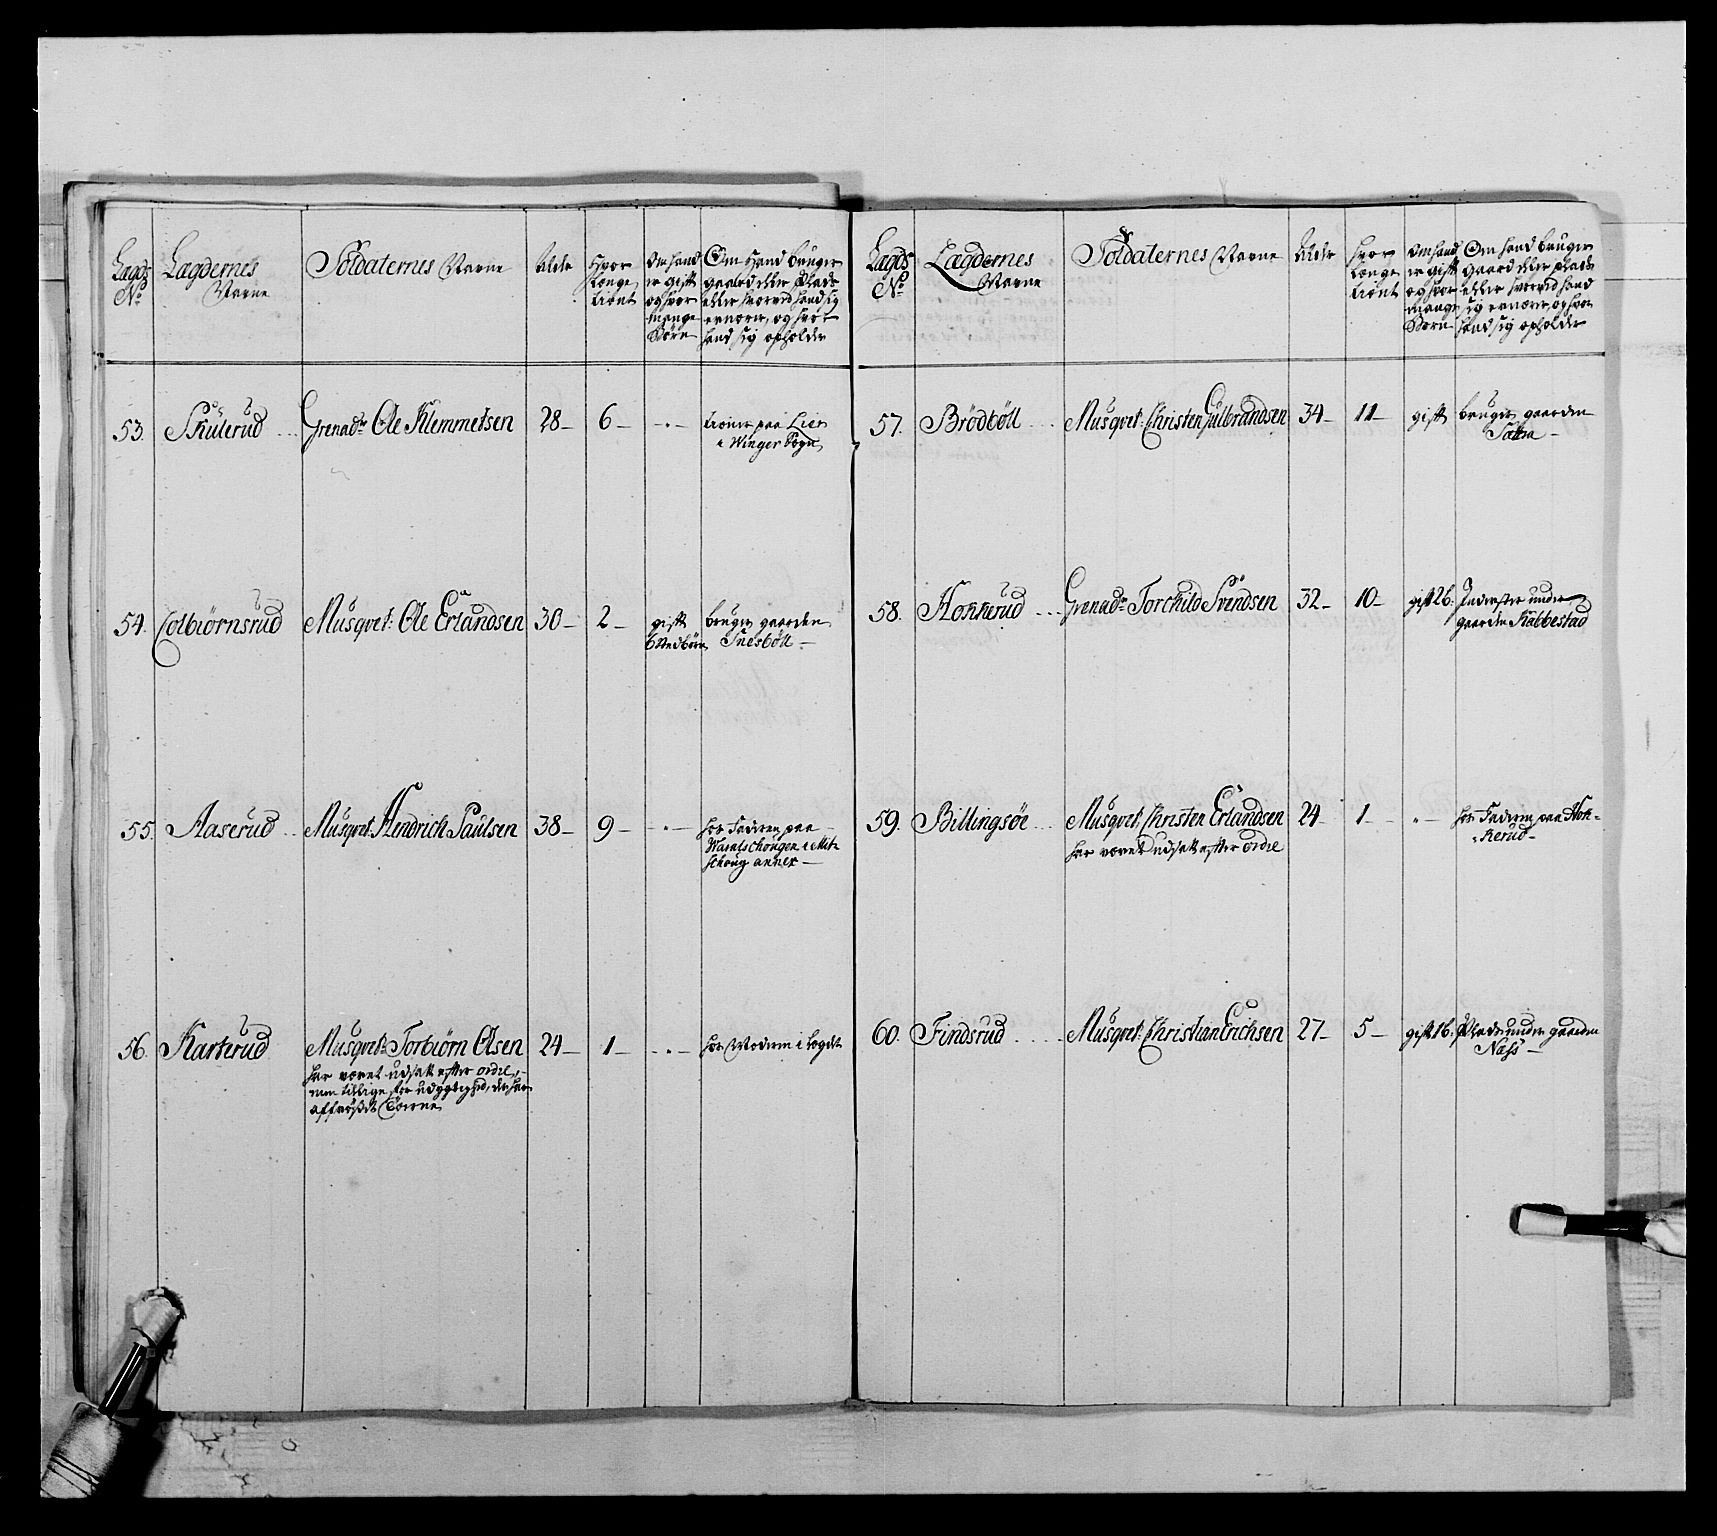 Lægds
No
Lægdernes
Navne
Soldaternes Navne
Alder
Hvor
længe
tient
Om hand
er gift
og hvor
mange
Børn
Om Hand bruger
gaard eller Plads
eller hvorved hand sig
ernærer, og hvor
hand sig opholder
53. Skulerud ... Grenadr Ole Klemmetsen 28 - 6 - - " - tiener paa Lier
i Winger Sogn
54. Colbiörnsrud Musqvet: Ole Erlandsen 30 - 2 - gift bruger gaarden
6 Snesböll -
55. Aaserud .. Musqvet: Hendrich Paulsen 38 - 9 - - " - hos Faderen paa
i Mit
schoug annex -
56. Karterud Musqvet: Torbiörn Olsen 24 - 1 - - " - hos Moderen i Lægdet
har været udsat efter ordre,
men tillige for udygtighed, der har
Lægds
No
Lægdernes
Navne
Soldaternes Navne
Alder
Hvor
længe
tient
Om hand
er gift
og hvor
mange
Børn
Om hand bruger
gaard eller plads
eller hvorved hand
sig ernærer, og hvor
hand sig opholder
57. Brödböll ... Musqvet: Christen Gulbrandsen 34 - 11 - gift bruger gaarden
Sætra -
58. Hokkerud ... Grenadr Torchild Svendsen 32 - 10 - gift 2 b: Inderster under
gaarden Kabbestad
59. Billingsöe ... Musqvet: Christen Erlandsen 24 - 1 - " - hos Faderen paa Hok-
kerud -
har været udsat efter ordre
60. Findsrud .... Musqvet: Christian Erichsen 27 - 5 - gift 1 b: Plads under gaarden
Næss -